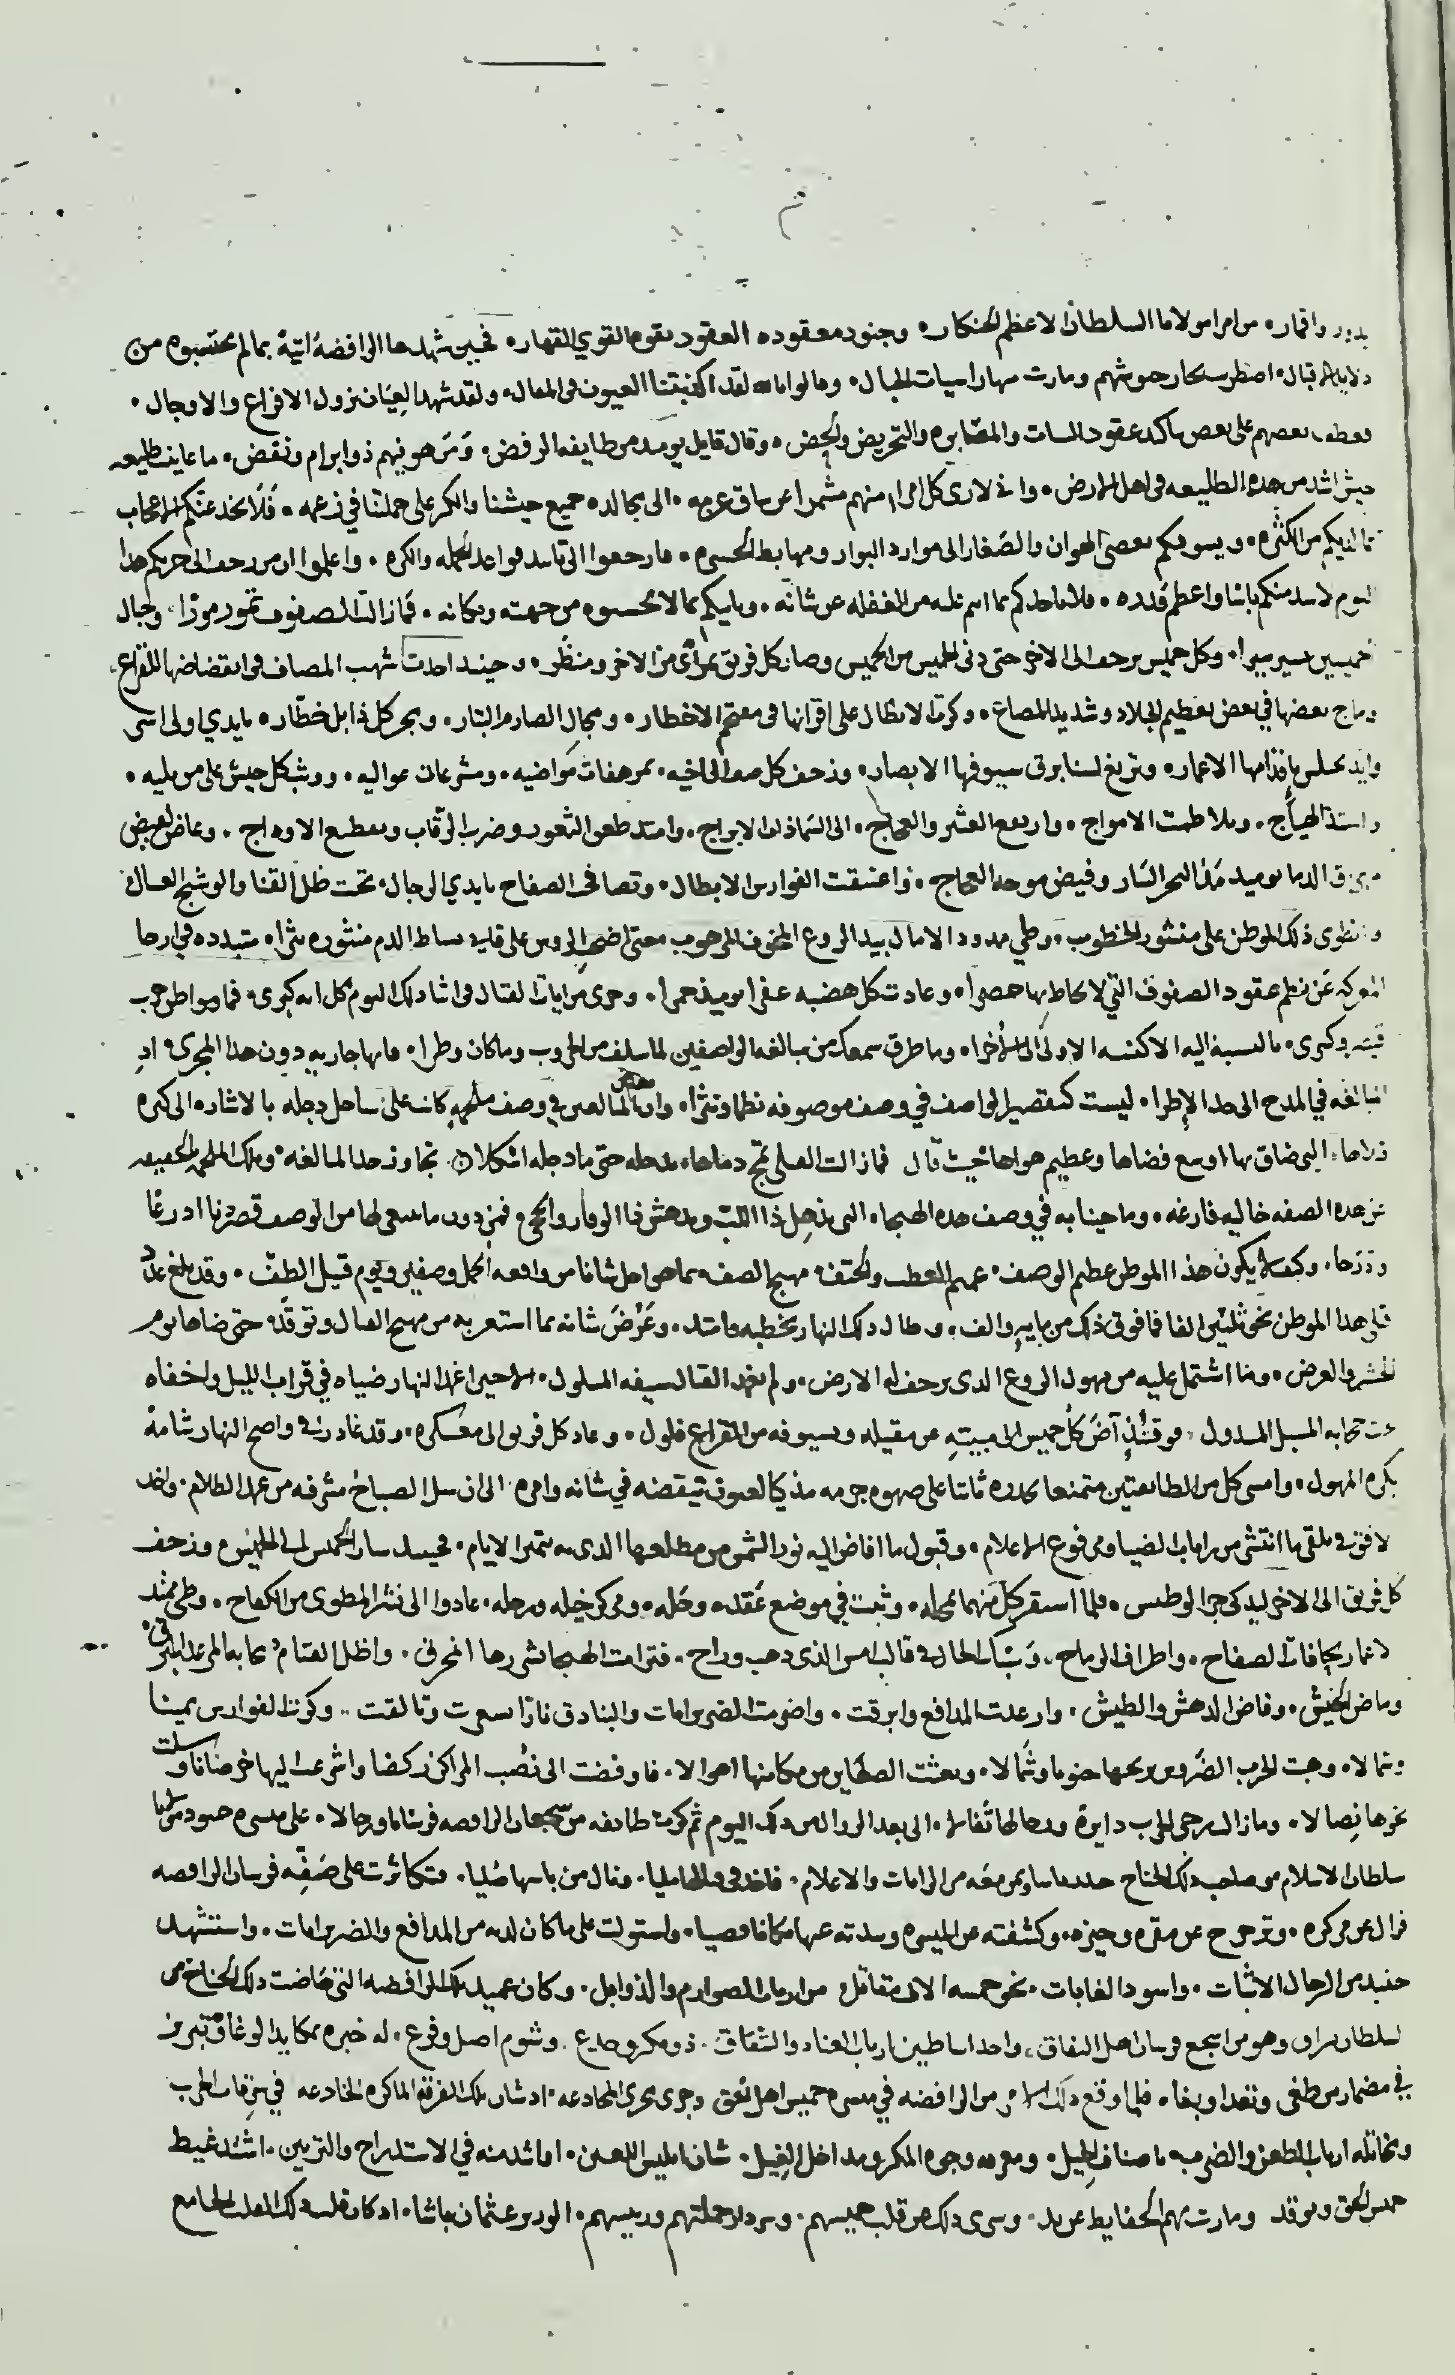 بدور واقمار۰ من امرا مولانا السلطان الاعظم الخنكار۰ وجنود معقوده العقود بقوه القوي القهار۰ فحين شهدها الرافضه اتيةً بما لم يحتسبوه من
دلايل الاقبال۰ اضطربت بحار جيوشهم ومارت بها راسيات الجبال۰ وقالوا لقد اكذبتنا العيون في المقال۰ ولقد شهد العِيَان بنزول الافزاع والاوجال ۰
فعطف بعضهم على بعض بتاكيد عقود الثبات والمصابره والتحريض والحض ۰ وقال قايل يوميد من طايفه الرفض۰ وَمَن هو فيهم ذو ابرام ونقض۰ ما عاينت طليعه
جيش اشد من هذه الطليعه في اهل الارض۰ واني لارى كل امراء منهم مشمرا عن ساق عزمه۰ الى مجالده جميع جيشنا والكر على حملتنا في زعمه۰ فَلَا يخدعنكم الاعجاب
بما لديكم من الكثره۰ ويسوقكم بعصيّ الهوان والصَّغار الى موارد البوار ومهابط الحسره۰ فارجعوا الى تاسيد قواعد الحمله والكره ۰ واعلموا ان من زحف الى حربكم هذا
اليوم لاشد منكم باسًا واعظم قدره ۰ فلا ياخذكم بما انتم عليه من الغفله عن شانه ۰ وياتيكم بما لا تحتسبوه من جهته ومكانه ۰ فما زالت الصفوف تمور مورًا۰ وجبال
الخميسين تسير سيرا۰ وكل خميس يزحف الى الاخر حتى دنى الخميس من الخميس وصار كل فريق بمرأى من الاخر ومنظَر۰ وحينيد اخذت شهب المصاف في انقضاضها للقراع۰
وماج بعضها في بعض بعظيم الجلاد وشديد المصاع۰ وكرّت الابطال على اقرانها في مقتحم الاخطار۰ ومجال الصارم البتار۰ وبجر كل ذابل خطّار۰ بايدي اولى اسى
وايد تختلس باقدامها الاعمار۰ وتزيغ لسنا برق سيوفها الابصار۰ وزحف كل صف الى اخيه۰ بمرهفات مَواضيه۰ ومشرعات عواليه۰ ووشكل جيش على من يليه۰
واشتد الهياج۰ وتلاطمت الامواج۰ وارتفع العثير والعجاج۰ الى السَّما ذات الابراج۰ وامتد طعن الثغور وضرب الرقاب وتقطيع الاوداج ۰ وغاض بغيض
مهرق الدما يوميد مَدّ البحر التيّار وفيض موجه العجاج۰ واعتنقت الفوارس الابطال۰ وتصافحت الصفاح بايدي الرجال۰ تحت ظل القنا والوشيج العسال
وانطوى ذلك الموطن على منشور الخطوب۰ وطي ممدود الامال بيد الروع المخوف المرهوب حتى اضحت الروس على قايه بساط الدم منثوره نثرا۰ متبدده في ارجا
المعركه عن نظم عقود الصفوف التي لا يحاط بها حصرا۰ وعادت كل هضبه عفرا يوميذ حمرا۰ وجرى من ايات القتال في اثنا ذلك اليوم كل ايه كبرى۰ فما مواطن حرب
قيتبه وكسرى۰ بالنسبة اليه الا كنسبه الاولى الى الاخرا۰ وما طرق سمعك من مبالغه الواصفين لما سلف من الحروب وما كان وطرا۰ فانها جاريه دون هذا المجرى۰ اذِ
المبالغه في المدح الى حد الإطرا۰ ليست كتقصير الواصف في وصف موصوفه نظما ونثرا۰ وان بعض المبالغين في وصف ملحمه كانت على ساحل دجله بالاشاره الى كثره
قتلاها۰ التي ضاق بها اوسع فضاها وعظيم هواها حيث قال فما زالت القتلى تمج دماها۰ بدجله حتى ما دجله اشكلان تجاوز حد المبالغه۰ وتلك الملحمه بالحقيقه
عن هذه الصفه خاليه فارغه۰ وما جينا به في وصف هذه الهيجا۰ التي تذهل ذا اللبّ وتدهش ذا الوقار والحجى۰ فمن دون ما ينبغى لها من الوصف قصرنا اذرعًا
وذرحا۰ وكيف لا يكون هذا الموطن عظيم الوصف۰ عميم العطب والحتف۰ مهيج الصف۰ بما هو اجل شانا من واقعه الجمل وصفين ويوم قتيل الطفّ ۰ وقد بلغ عدد
قتلى هذا الموطن نحو ثلثين الفا فما فوق ذلك من ماية والف۰ وطال ذلك النهار بخطبه فامتد۰ وعَرُضَ شانه بما استعر به من مهيج القتال وتوقّد۰ حتى ضاها يوم
الحشر والعرض۰ وما اشتمل عليه من مهول الروع الذى ترجف له الارض۰ ولم يغمد القتال سيفه المسلول۰ الا حين اغمد النهار ضياه في قراب الليل واخفاه
تحت حجابه المسبل المسدول۰ فوقتيذٍ آضَ كل خميس الى مبيته عن مقيله وبسيوفه من القراع فلول۰ وعاد كل فريق الى معسكره۰ وقد غادرت في واضح النهار شامةً
بكره المهول۰ وامسى كل من الطايفتين متمنعا بحذره ثابتا على صهوه حزمه مذكيا لعيون تيقضه في شانه وامره۰ الى ان سل الصباح مشرفه من غمد الظلام۰ واخذ
الافق في تلقى ما انتشر من رايات الضيا ومرفوع الاعلام۰ وقبول ما افاض اليه نور الشمس من مطلعها الذى به تتميز الايام۰ فحينيد سار الخميس الى الخميس وزحف
كل فريق الى الاخر ليذكى حر الوطيس۰ فلما استقر كل منهما بمحله۰ وثبت في موضع عَقده وحَله۰ ومركز خيله ورجله۰ عادوا الى نشر المطوى من الكفاح۰ وطي ممتد
الاعمار بحافات الصفاح۰ واطراف الرماح۰ وسُبّك الحال في قالب امس الذى ذهب وراح۰ فترامت الهيجا بشررها المحرق۰ واظل القتام سحابه المرعد المبرق۰
وماض الجيش۰ وفاض الدهش والطيش۰ وارعدت المدافع وابرقت۰ واضرمت الضربزانات والبنادق نارًا تسعرت وتالقت۰ وكرت الفوارس يمينا
وشمالا۰ وهبت الحرب الضَّروس بريحها جنوبا وشَمالا۰ وبعثت الصفاين من مكامنها اهوالا۰ فاوفضت الى نُصُب المراكز ركضا واشرعت اليها خرصانا وسلت
نحوها نِصالا۰ وما زالت رحى الحرب دايرة ورجالها ثفالا۰ الى بعد الزوال من ذلك اليوم ثم كرت طايفه من شجعان الرافضه فرسانا ورجالا۰ على ميسره جنود مولانا
سلطان الاسلام من صاحب ذلك الجناح حيدر باشا ومن معَه من الرايات والاعلام۰ فاخذ في قتالها مليا۰ ونال من باسها صُليا۰ وتكاثرت على صَفّه فرسان الرافضه
فزال عن مركزه۰ وتزحزح عن مقره وحيزه۰ وكشفته عن الميسره وبعدته عنها مكانا قصيا۰ واستولت على ما كان لديه من المدافع والضربزانات۰ واستشهد
حينيد من الرجال الاثبات۰ واسود الغابات۰ نحو خمسه الاف مقاتل من ارباب الصوارم والذوابل۰ وكان عميد تلك الرافضه التي خاضت ذلك الجناح من
السلطان مراد وهو من اشجع فرسان اهل النفاق، واحد اساطين ارباب العناد والشقاق۰ ذو مكر وخدع۰ وشوم اصل وفرع۰ له خبره بمكايد الوغا وتبريز
في مضمار من طغى وتعدا وبغا۰ فلما اوقع ذلك الامر من الرافضه في ميسره خميس اهل الحق وجرى مجرى المخادعه۰ اذ شان تلك الفرقه الماكره الخادعه في بزقات الحرب
ومخاتله ارباب الطعن والضرب۰ باصناف الحِيَل۰ ومعرفه وجوه المكر ومداخل الغِيَل۰ شان ابليس اللعين۰ او اشد منه في الاستدراج والتزيين۰ اشتد غيظ
خميس الحق وتوقد ومارت بهم الحفايظ عن يد۰ وسرى ذلك من قلب خميسهم۰ وسردار حملتهم ورييسهم۰ الوزير عثمان باشا۰ اذ كان قلبه ذلك القلب الجامع